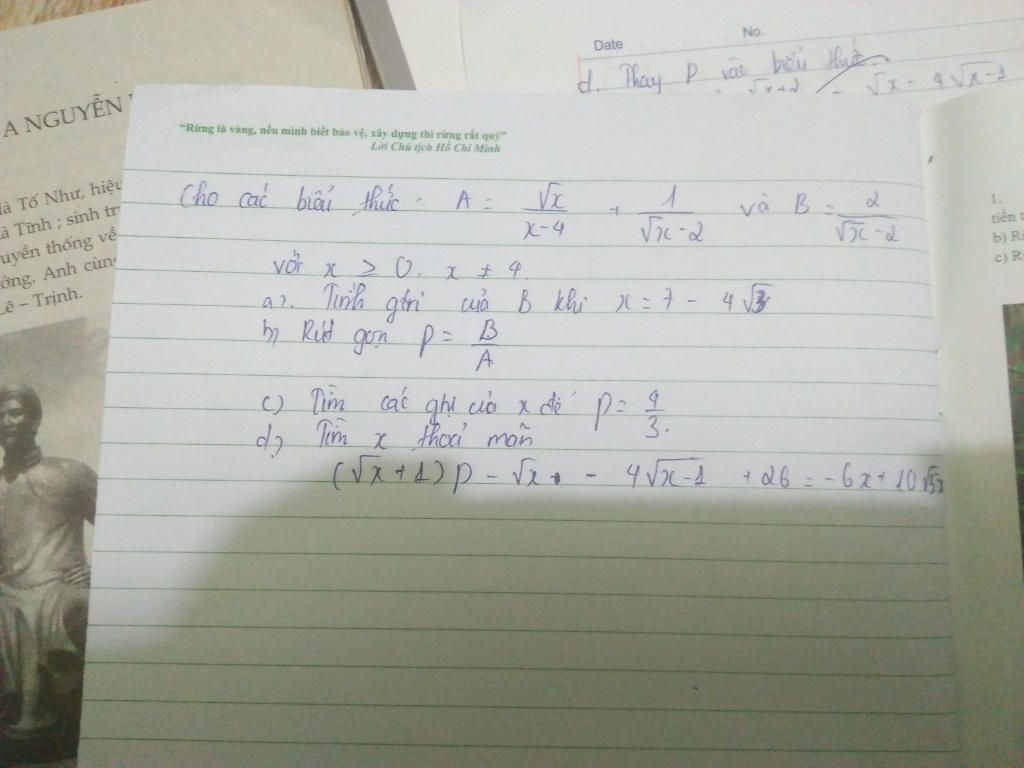 A NGUYỄN
là Tố Như, hiệu
à Tĩnh ; sinh tr
uyền thống về
ống. Anh cùn
Lê – Trịnh.
Date No.
d. Thay P vào biểu thức
√x+2 = √x - 4√x-1
“Rừng là vàng, nếu mình biết bảo vệ, xây dựng thì rừng rất quý”
Lời Chủ tịch Hồ Chí Minh
Cho các biểu thức : A = √x/(x-4) + 1/(√x-2) và B = 2/(√x-2)
với x ≥ 0. x ≠ 4
a). Tính gtri của B khi x = 7 - 4√3
b) Rút gọn P = B/A
c) Tìm các ghị của x để P = 4/3.
d) Tìm x thoả mãn
(√x+1)P - √x - 4√x-1 + 26 = -6x + 10√5x
1.
tiền t
b) R
c) R